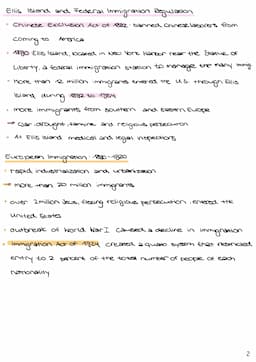 Ellis Island and Federal Immigration Regulation
• Chinese Exclusion Act of 1882 banned Chinese laborers from
coming to America
• 1890 Ellis Island, located in New York Harbor near the Statue of
Liberty, a federal immigration station to manage the many
• more than 12 million immigrants entered the U.S. through Ellis
Island during 1892 to 1954
• more immigrants from Southern and Eastern Europe
→ war, drought, famine and religious persecution
• At Ellis Island medical and legal inspections
European Immigration: 1880-1920
• rapid industrialization and urbanization
→ more than 20 million immigrants
• over 2 million Jews, fleeing religious persecution, entered the
United States
• outbreak of World War I caused a decline in immigration
• Immigration Act of 1924 created a quota system that restricted
entry to 2 percent of the total number of people of each
nationality
2